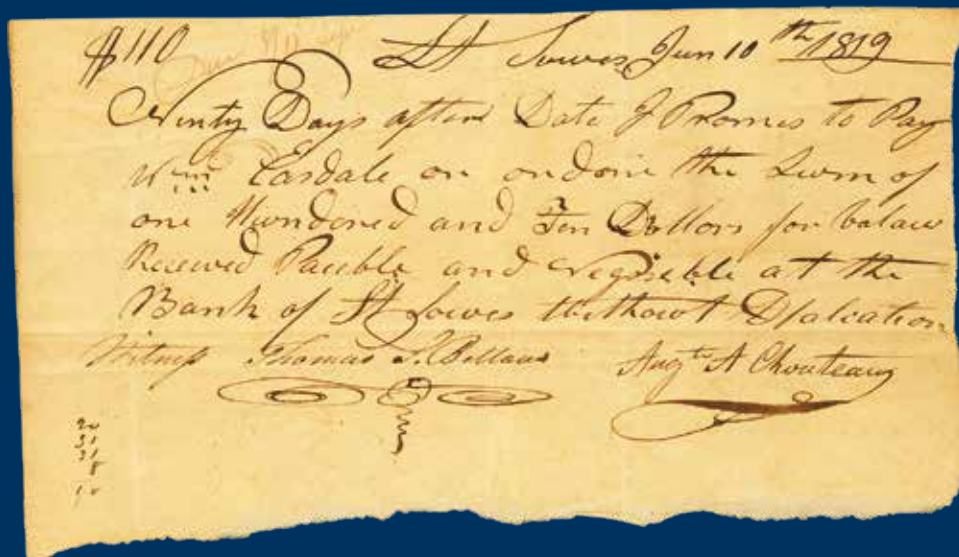 $110 St Lowes Jun 10th 1819
Ninty Days after Date I Promes to Pay
Wm Easdale or ordor the Sum of
one Hundered and Ten Dollors for
Receved Paieble and at the
Bank of St Lowes Without Dfalcation
Witness Thomas Augte A Chouteau
20
31
31
8
90